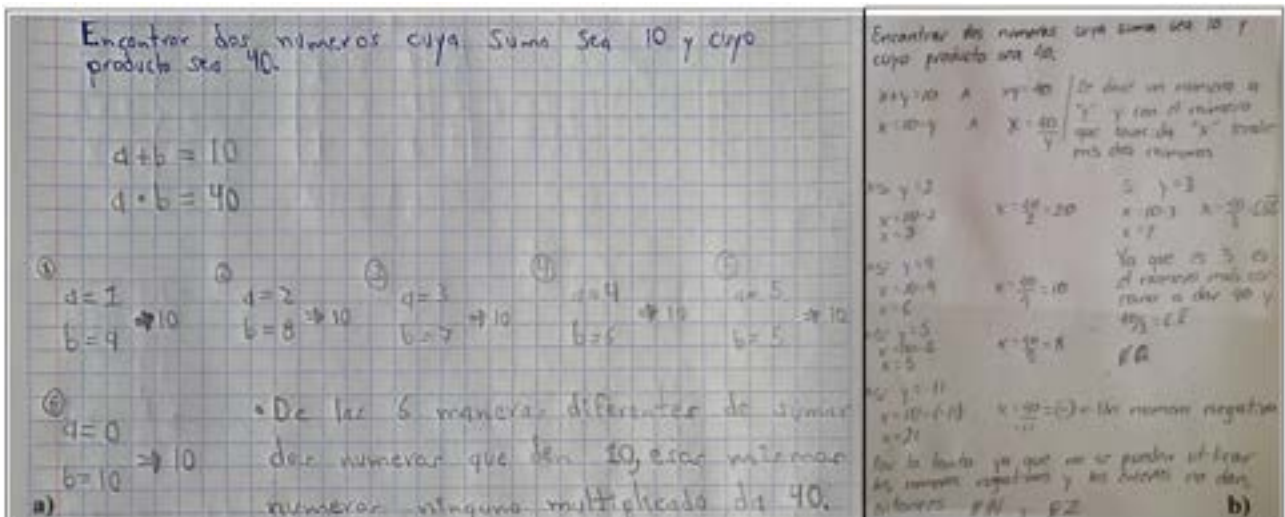 Encontrar dos números cuya suma sea 10 y cuyo
producto sea 40.
a+b = 10
a · b = 40
① a=1 b=9 ⇒ 10
② a=2 b=8 ⇒ 10
③ a=3 b=7 ⇒ 10
④ a=4 b=6 ⇒ 10
⑤ a=5 b=5 ⇒ 10
⑥ a=0 b=10 ⇒ 10
• De las 6 maneras diferentes de sumar
dos numeros que den 10, esas mismas
numeros ninguno multiplicado da 40.
a)
Encontrar dos números cuya suma sea 10 y
cuyo producto sea 40.
x+y=10 ∧ xy=40
x=10-y ∧ x=40/y
Se da un numero a
"y" y con el numero
que "x"
mis dos numeros
Si y=2
x=10-2 x=40/2=20
Si y=3
x=10-3
x=7
Si y=4
x=10-4 x=40/4=10
x=6
Ya que es 3 es
el numero mas
a dar 40 y
Si y=5
x=10-5 x=40/5=8
x=5
Si y=-11
x=10-(-11) = (-) = Un numero negativo
x=21
Por lo tanto ya que no se pueden utilizar
los numeros negativos y los no dan,
entonces ∉N y ∉Z
b)